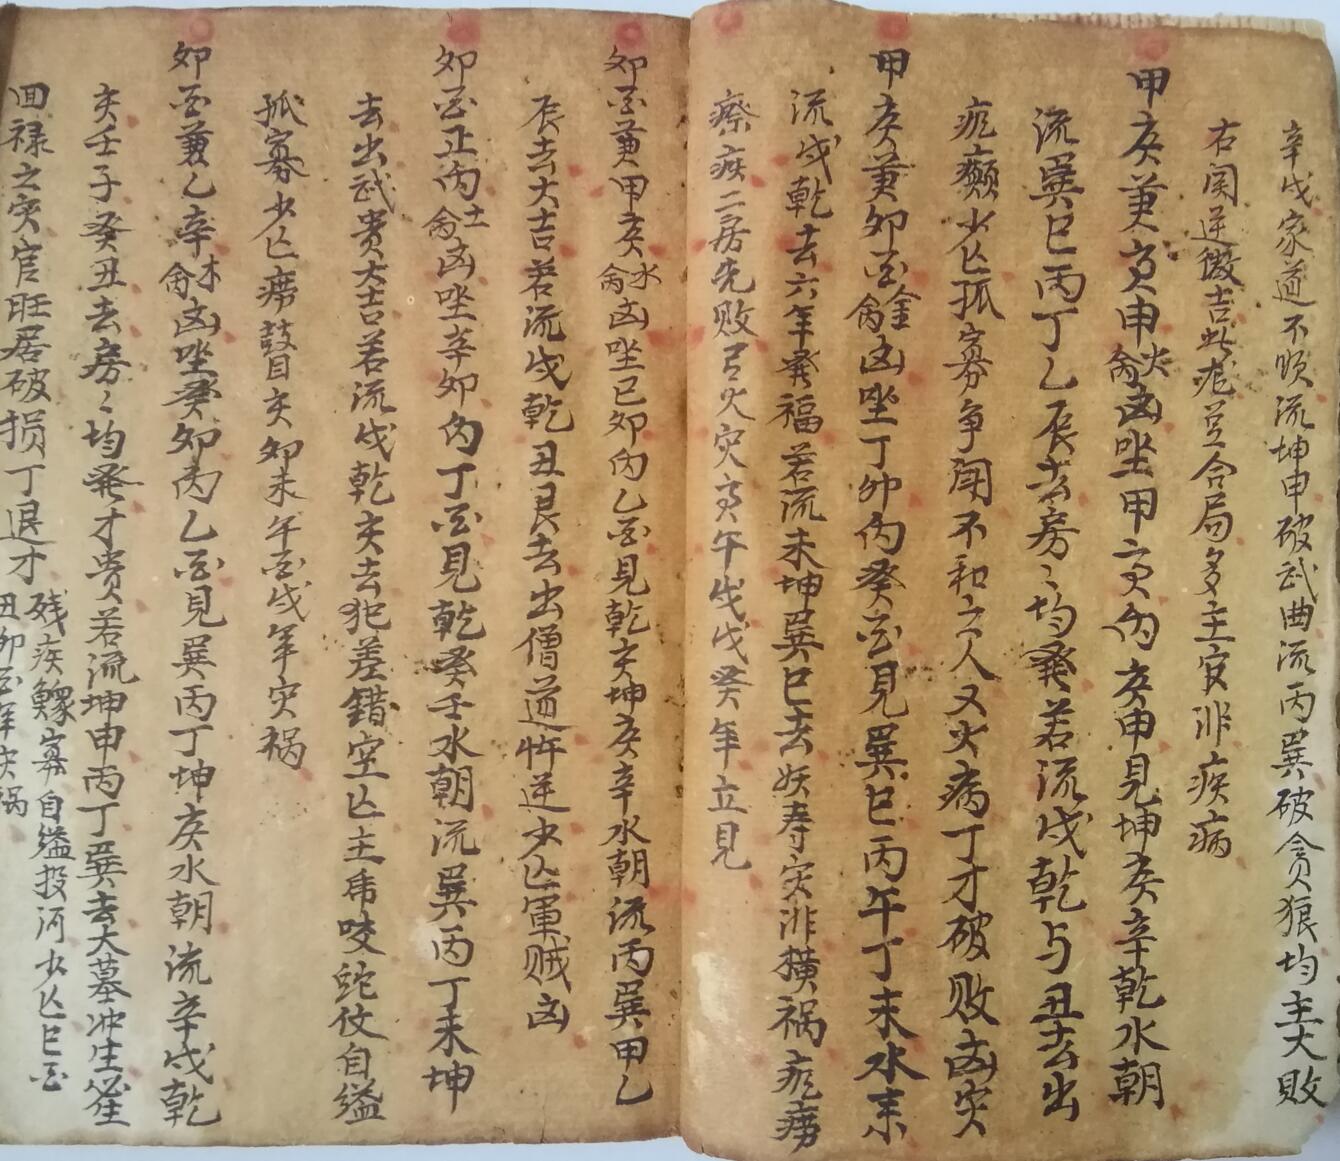 辛戌家道不順流坤申破武曲流丙巽破贪狼均主大敗
右関逆微吉此龙立合局多主官非疾病
甲庚兼寅申火禽凶坐甲寅内庚申見坤庚辛乾水朝
流巽巳丙丁乙辰去房〻均發若流戌乾与丑去出
疯癞少亡孤寡争闹不和之人又火病丁才破败凶灾
甲庚兼卯酉金禽凶坐丁卯内癸酉見巽巳丙午丁未水来
流戌乾去六年癸福若流未坤巽巳去妖寿灾非横祸疯痨
瘵疾二房先败吕火灾寅午戌戊癸年立見
卯酉兼甲庚水禽凶坐己卯内乙酉見乾亥坤庚辛水朝流丙巽甲乙
辰去大吉若流戌乾丑艮去出僧道忤逆少亡軍贼凶
卯酉正丙土禽凶坐辛卯内丁酉見乾癸壬水朝流巽丙丁未坤
去出武贵大吉若流戌乾亥去犯差錯空亡主乕咬蛇伩自縊
孤寡少亡痨鼓目亥卯未午酉戌年灾祸
卯酉兼乙辛木禽凶坐癸卯内乙酉見巽丙丁坤庚水朝流辛戌乾
亥壬子癸丑去房〻均發才贵若流坤申丙丁巽去大墓冲生崔
回禄之灾官旺居破损丁退才
残疾鰥寡自縊投河少亡巳酉
丑卯酉年灾祸